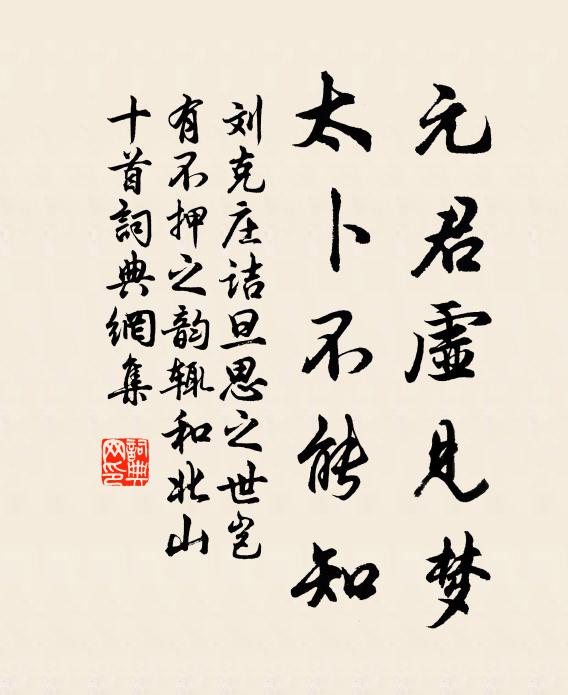 元君虚见梦
太卜不能知
刘克庄诘旦思之世岂
有不押之韵辄和北山
十首詞典網集
詞典
网印